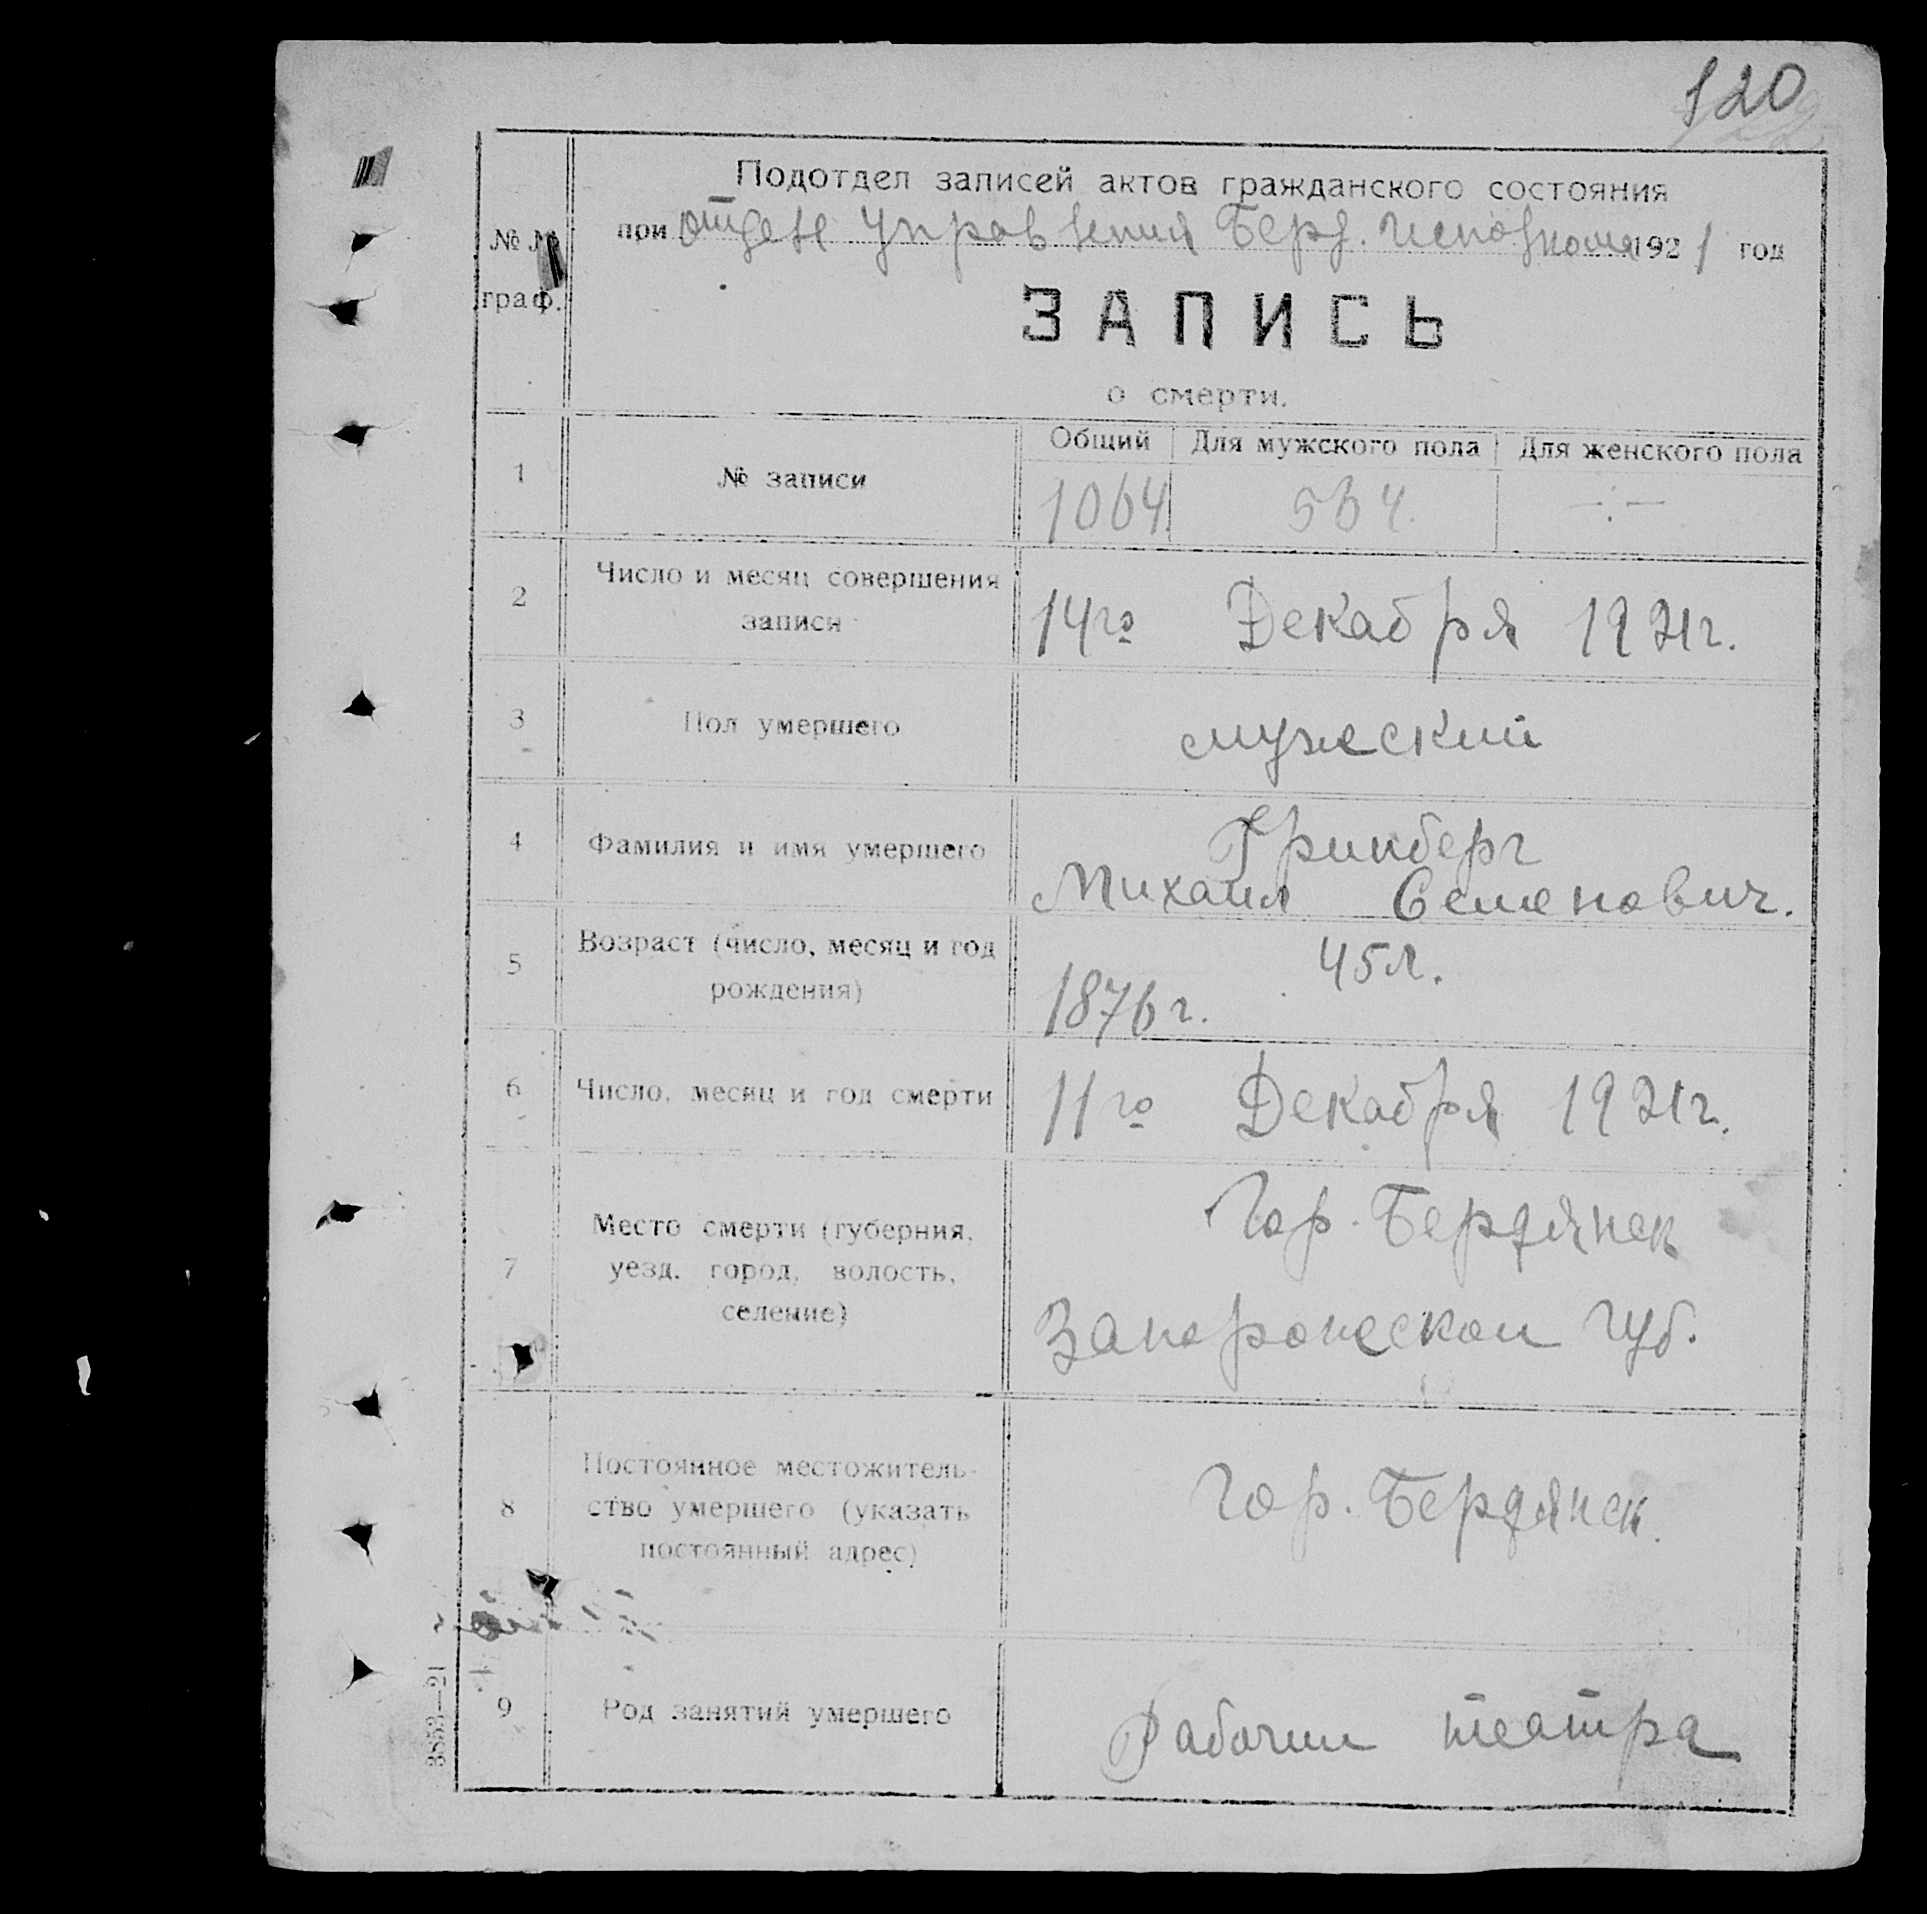 120
Подотдел записей актов гражданского состояния
при отделе Управления Берд. Исполкома 1921 год
№ №
граф.
ЗАПИСЬ
о смерти.
Общий Для мужского пола Для женского пола
1 № записи 1064. 564. —:—
2 Число и месяц совершения
записи
14го Декабря 1921г.
3 Пол умершего мужеский
4 Фамилия и имя умершего
Гринберг
Михаил Семенович.
5 Возраст (число, месяц и год
рождения)
45л.
1876г.
6 Число, месяц и год смерти 11го Декабря 1921г.
7 Место смерти (губерния,
уезд, город, волость,
селение)
Гор. Бердянск
Запорожеской губ.
8 Постоянное местожитель-
ство умершего (указать
постоянный адрес)
Гор. Бердянск.
9 Род занятий умершего Рабочий театра
3853—21